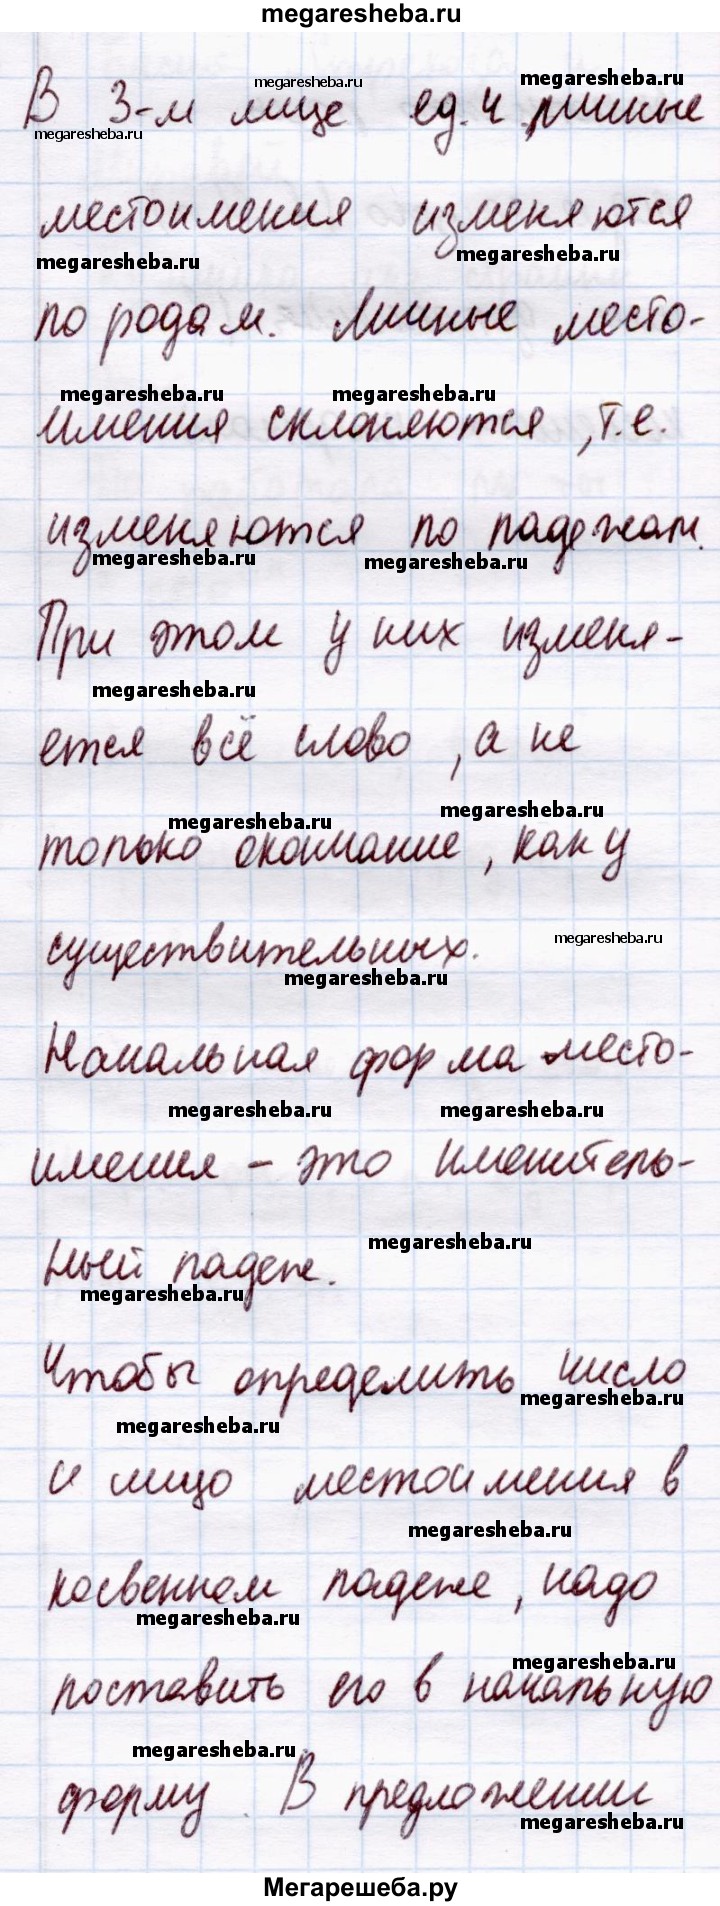 megaresheba.ru
В 3-м лице ед.ч. личные
местоимения изменяются
по родам. Личные место-
имения склоняются, т.е.
изменяются по падежам.
При этом у них изменя-
ется всё слово, а не
только окончание, как у
существительных.
Начальная форма место-
имения – это именитель-
ный падеж.
Чтобы определить число
и лицо местоимения в
косвенном падеже, надо
поставить его в начальную
форму. В предложении
Мегарешеба.ру